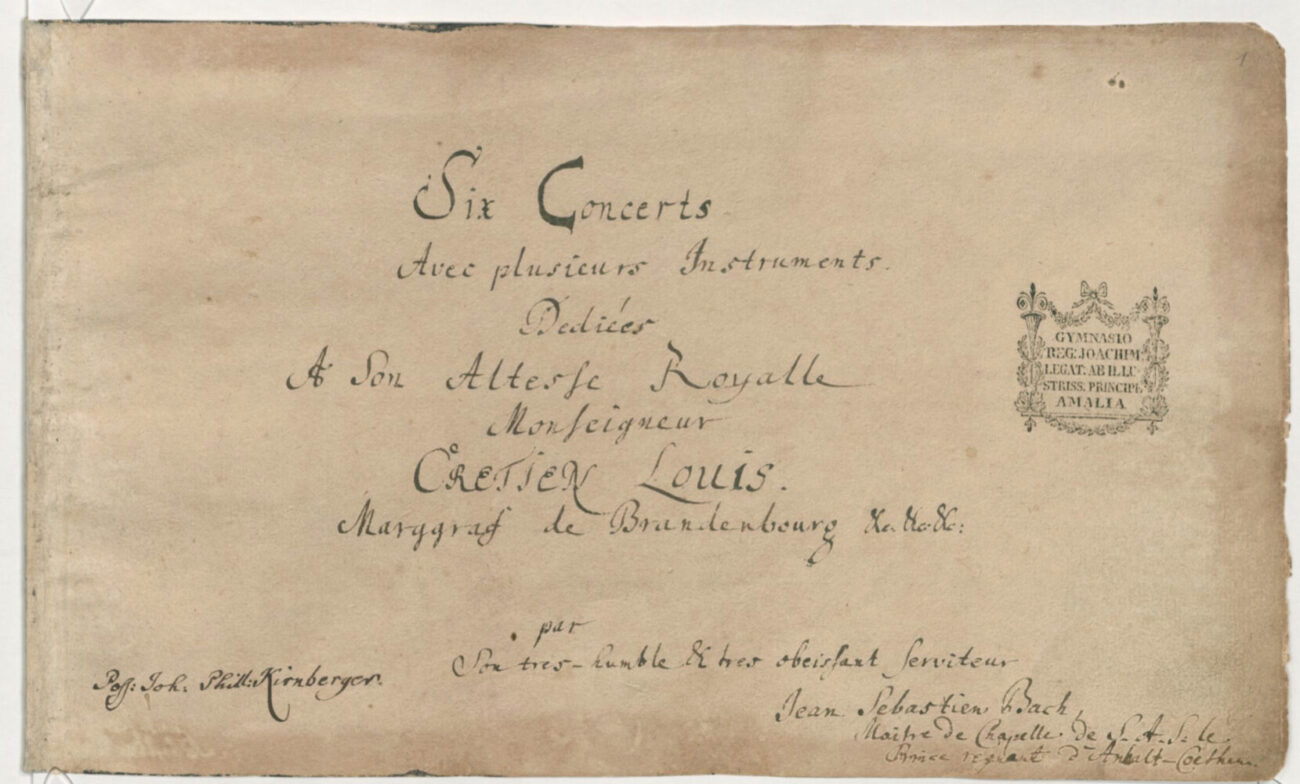 1
Six Concerts
Avec plusieurs Instruments.
Dediées
A Son Altesse Royalle
Monseigneur
CRETIEN Louis.
Marggraf de Brandenbourg &c. &c. &c:
GYMNASIO
REG: JOACHIM:
LEGAT: AB ILLU-
STRISS. PRINCIPE
AMALIA
par
Son tres-humble & tres obeissant serviteur
Poss: Joh: Phill: Kirnberger.
Jean Sebastien Bach,
Maitre de Chapelle de S. A. S. le
Prince regnant d'Anhalt-Coethen.